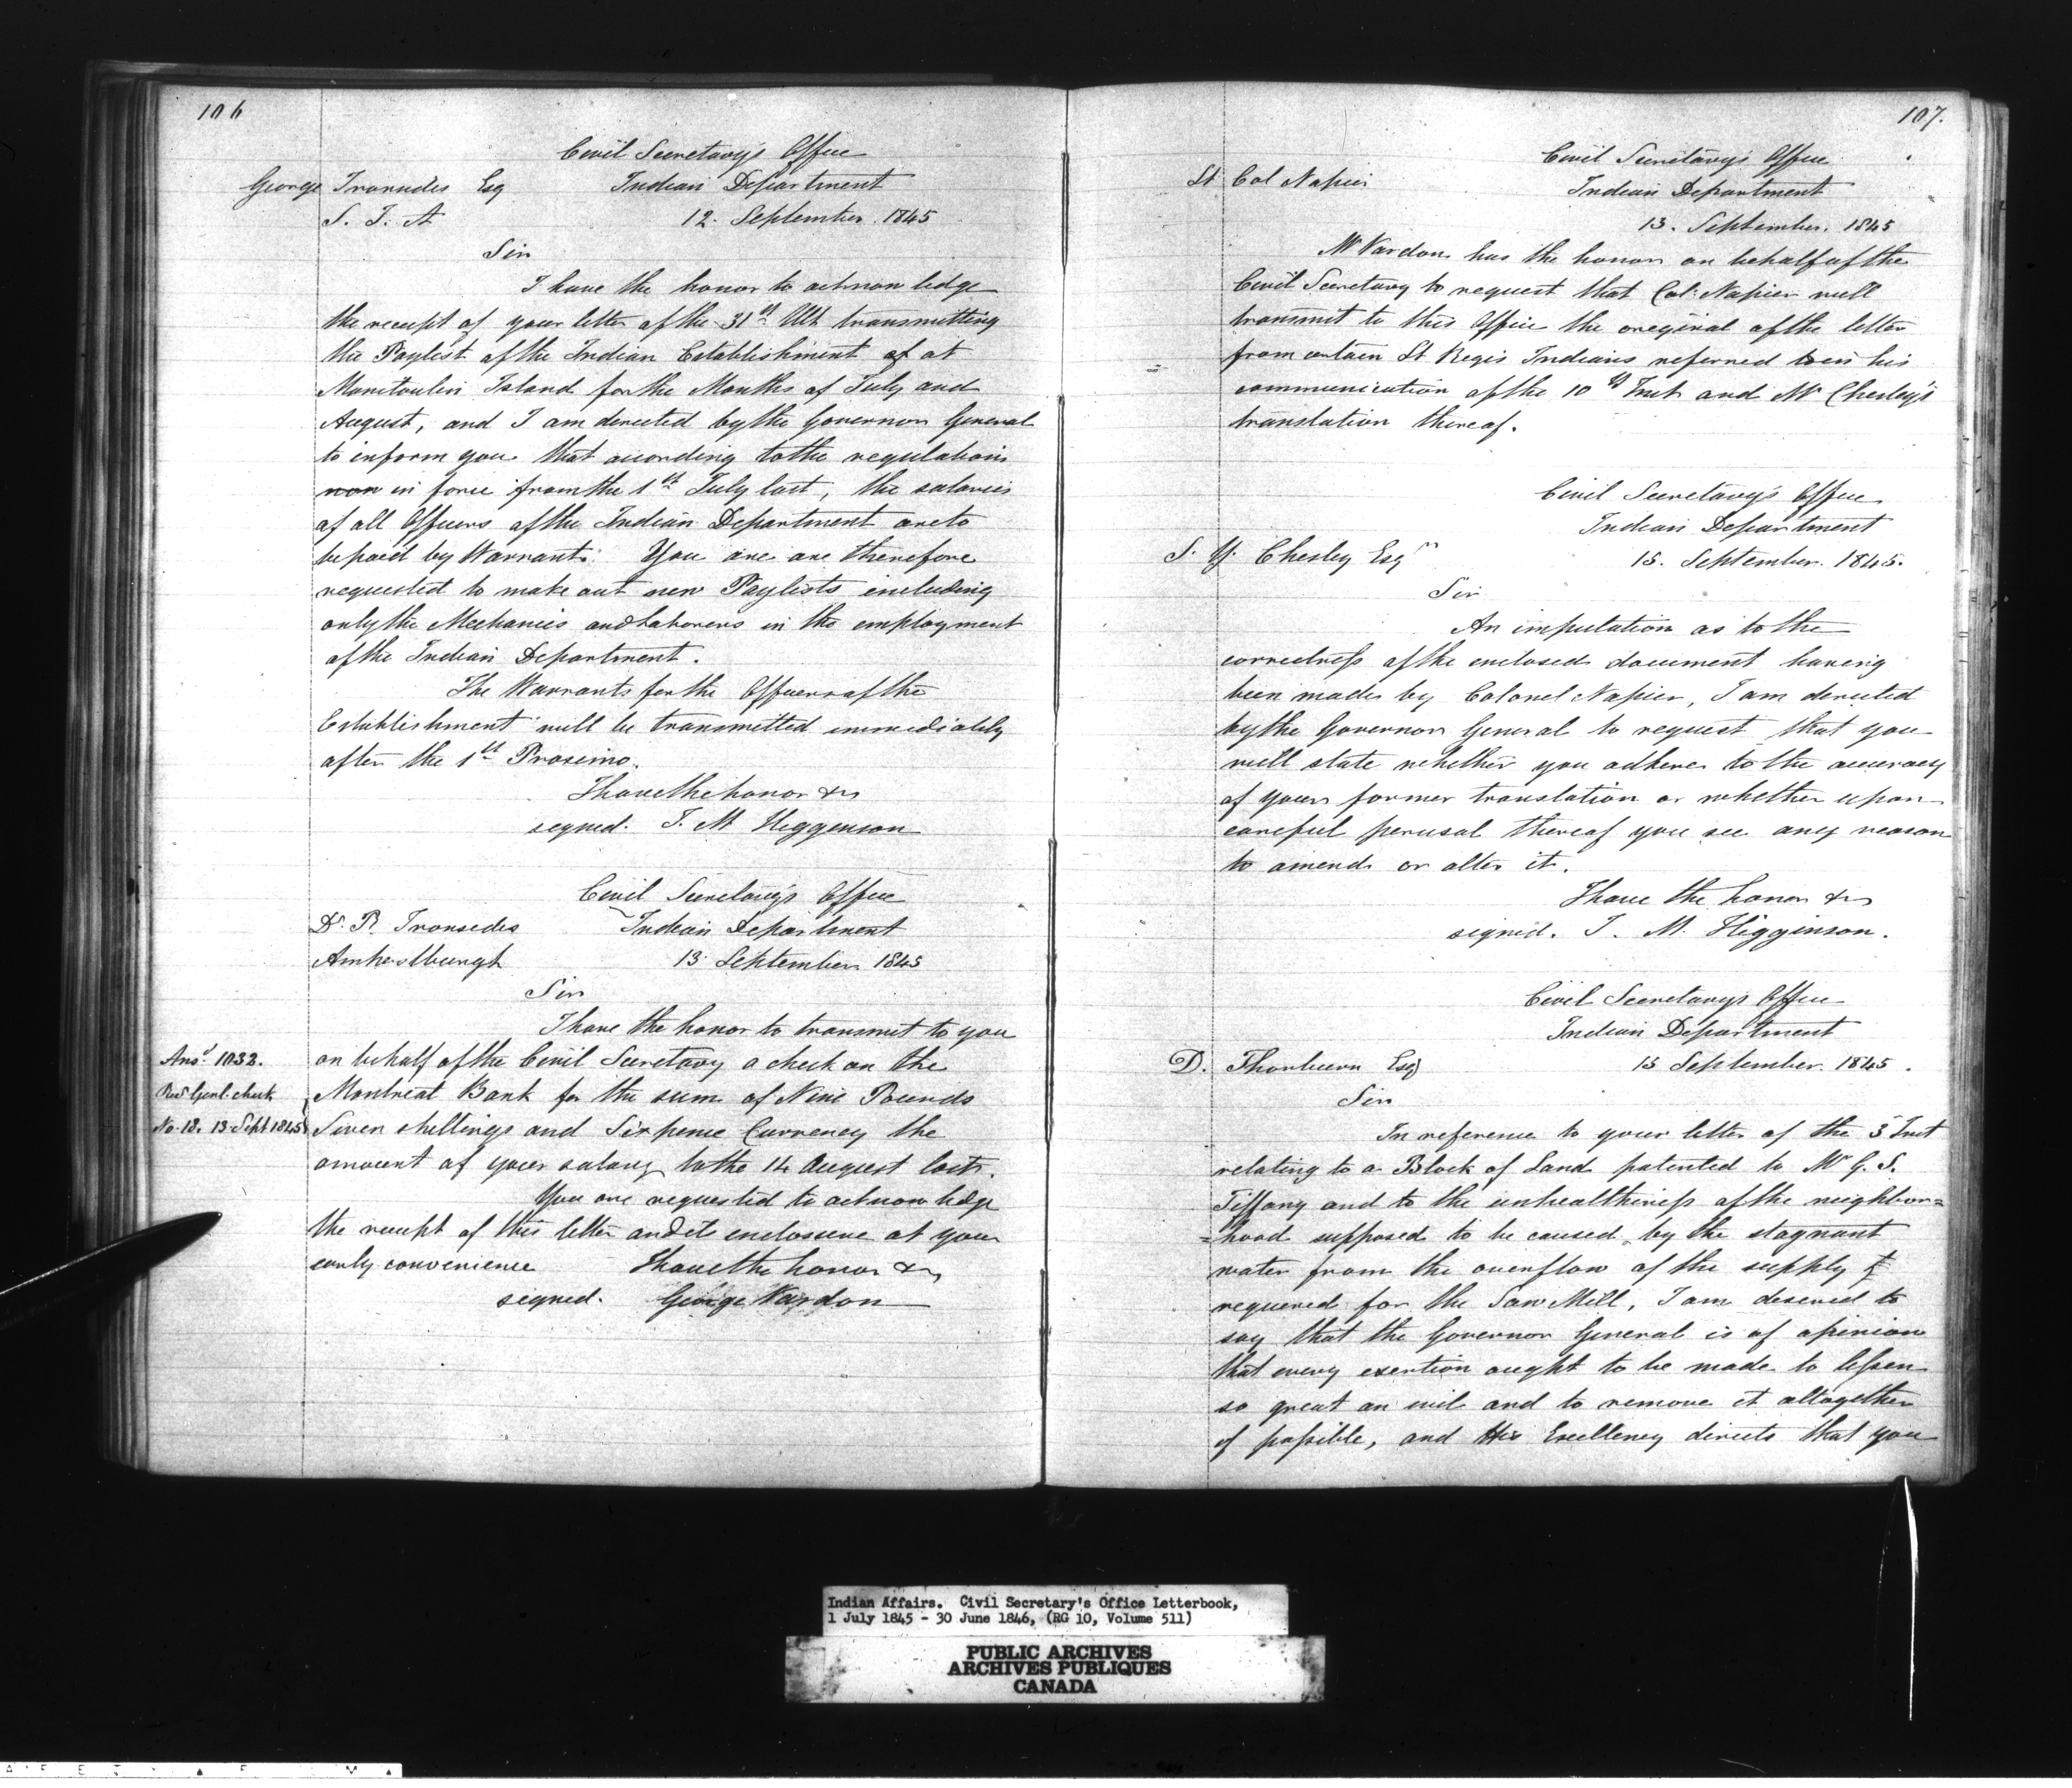 106
Civil Secretary's Office
George Ironsides Esq Indian Department
S. I. A 12. September. 1845
Sir
I have the honor to acknowledge
the receipt of your letter of the 31st Ult transmitting
the Paylist of the Indian Establishment of at
Manitoulin Island for the Months of July and
August, and I am directed by the Governor General
to inform you that according to the regulations
now in force from the 1st July last, the salaries
of all Officers of the Indian Department are to
be paid by Warrant. You are are therefore
requested to make out new Paylists including
only the Mechanics and Laborers in the employment
of the Indian Department.
The Warrants for the Officers of the
Establishment will be transmitted immediately
after the 1st Proximo.
I have the honor &c
signed. J. M Higgenson
Civil Secretary's Office
Dr. R. Ironsedes Indian Department
Amherstburgh 13 September 1845
Sir
I have the honor to transmit to you
Ansd 1032. on behalf of the Civil Secretary a check on the
Recr Genl. check Montreal Bank for the sum of Nine Pounds
No. 18. 13 Sept 1845 Seven shillings and Sixpence Currency the
amount of your salary to the 14 August last.
You are requested to acknowledge
the receipt of this letter and its enclosure at your
early convenience I have the honor &c
signed. George Vardon
107.
Civil Secretary's Office
Lt Col Napier Indian Department
13. September. 1845
Mr Vardon has the honor on behalf of the
Civil Secretary to request that Col: Napier will
transmit to this Office the original of the letter
from certain St Regis Indians referred to in his
communication of the 10th Inst and Mr Chesley's
translation thereof.
Civil Secretary's Office
Indian Department
S. Y. Chesley Esqr 15. September. 1845.
Sir
An imputation as to the
correctness of the enclosed document having
been made by Colonel Napier, I am directed
by the Governor General to request that you
will state whether you adhere to the accuracy
of your former translation or whether upon
careful perusal thereof you see any reason
to amend or alter it.
I have the honor &c
signed. J. M. Higginson.
Civil Secretary's Office
Indian Department
D. Thorburn Esq 15 September. 1845.
Sir
In reference to your letter of the 3 Inst
relating to a Block of Land patented to Mr G. S.
Tiffany and to the unhealthiness of the neighbor=
=hood supposed to be caused by the stagnant
water from the overflow of the supply
required for the Saw Mill, I am desired to
say that the Governor General is of opinion
that every exertion ought to be made to lessen
so great an evil and to remove it altogether
if possible, and His Excellency directs that you
Indian Affairs. Civil Secretary's Office Letterbook,
1 July 1845 - 30 June 1846, (RG 10, Volume 511)
PUBLIC ARCHIVES
ARCHIVES PUBLIQUES
CANADA